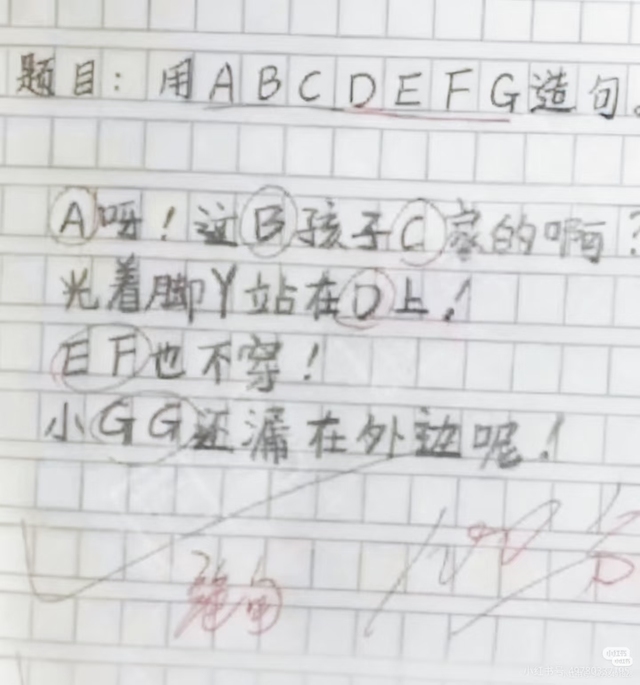 题目：用ABCDEFG造句。
A呀！这B孩子C家的啊？
光着脚丫站在D上！
EF也不穿！
小GG还漏在外边呢！
100分
小红书